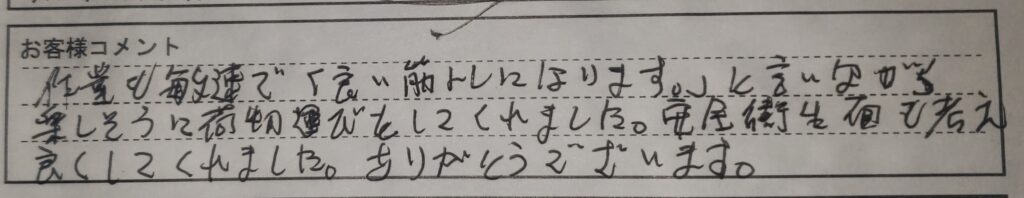 お客様コメント
作業も敏速で「良い筋トレになります。」と言いながら
楽しそうに荷物運びをしてくれました。安全衛生面も考え
良くしてくれました。ありがとうございます。